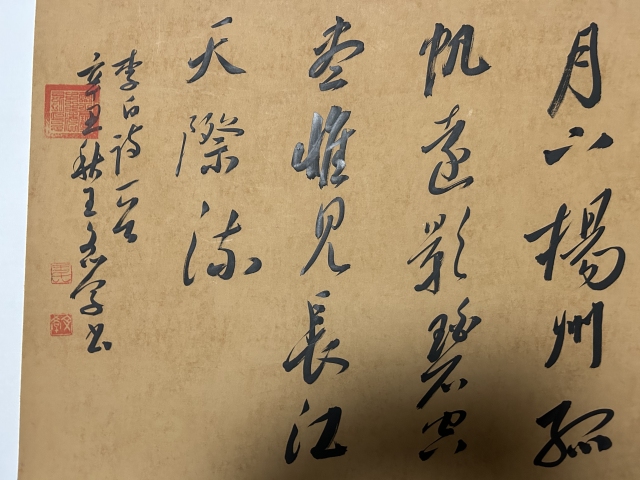 月下楊州孤
帆遠影碧空
盡惟見長江
天際流
李白詩一首
辛丑秋王
書